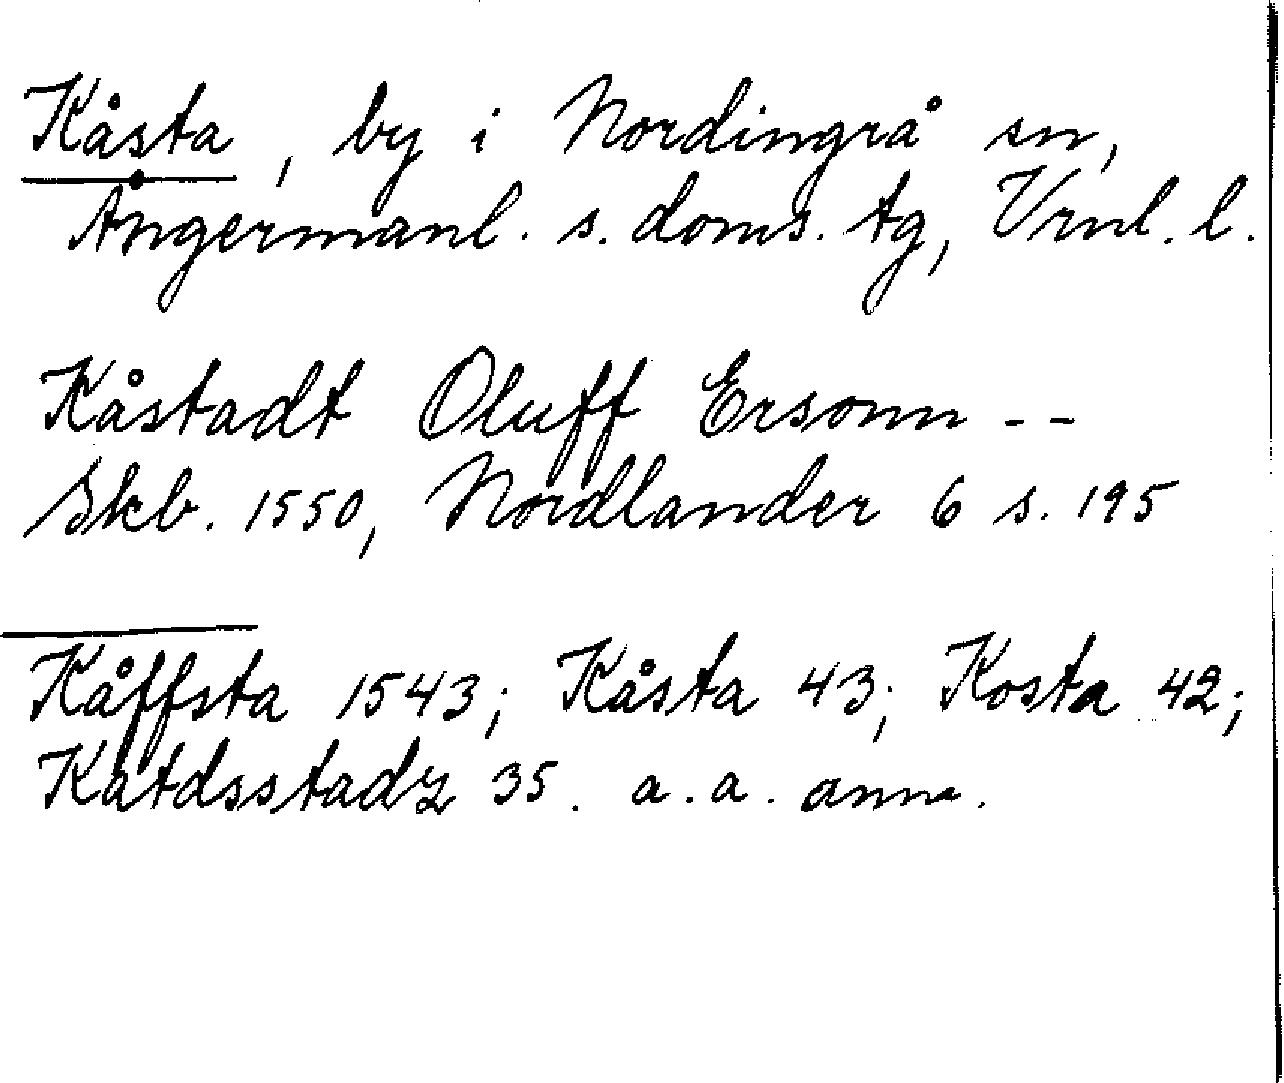 Kåsta, by i Nordingrå sn,
Ångermanl. s. doms. tg, Vrnl. l.
Kåstadt Oluff Ersonn - -
Skb. 1550, Nordlander 6 s. 195
Kåffsta 1543; Kåsta 43; Kosta 42;
Katdsstadz 35. a. a. anm.